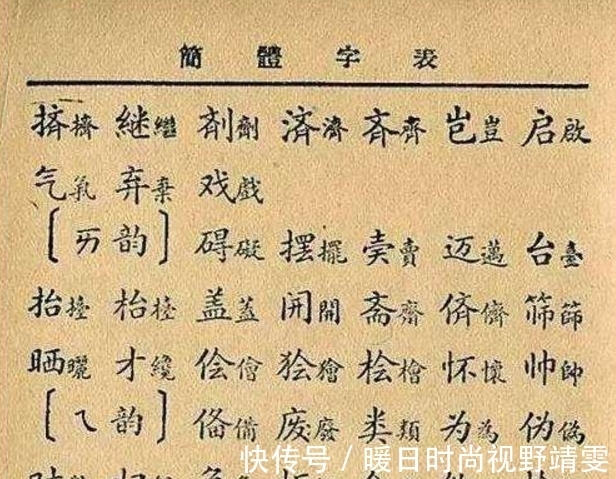 簡體字表
挤擠 継繼 剂劑 済濟 斉齊 岂豈 启啟
气氣 弃棄 戏戲
〔ㄞ韵〕 碍礙 摆擺 卖賣 迈邁 台臺
抬擡 枱檯 盖蓋 开開 斋齋 侪儕 筛篩
晒曬 才纔 侩儈 狯獪 桧檜 怀懷 帅帥
〔ㄟ韵〕 俻備 废廢 类類 为為 伪偽
快传号/暖日时尚视野靖雯